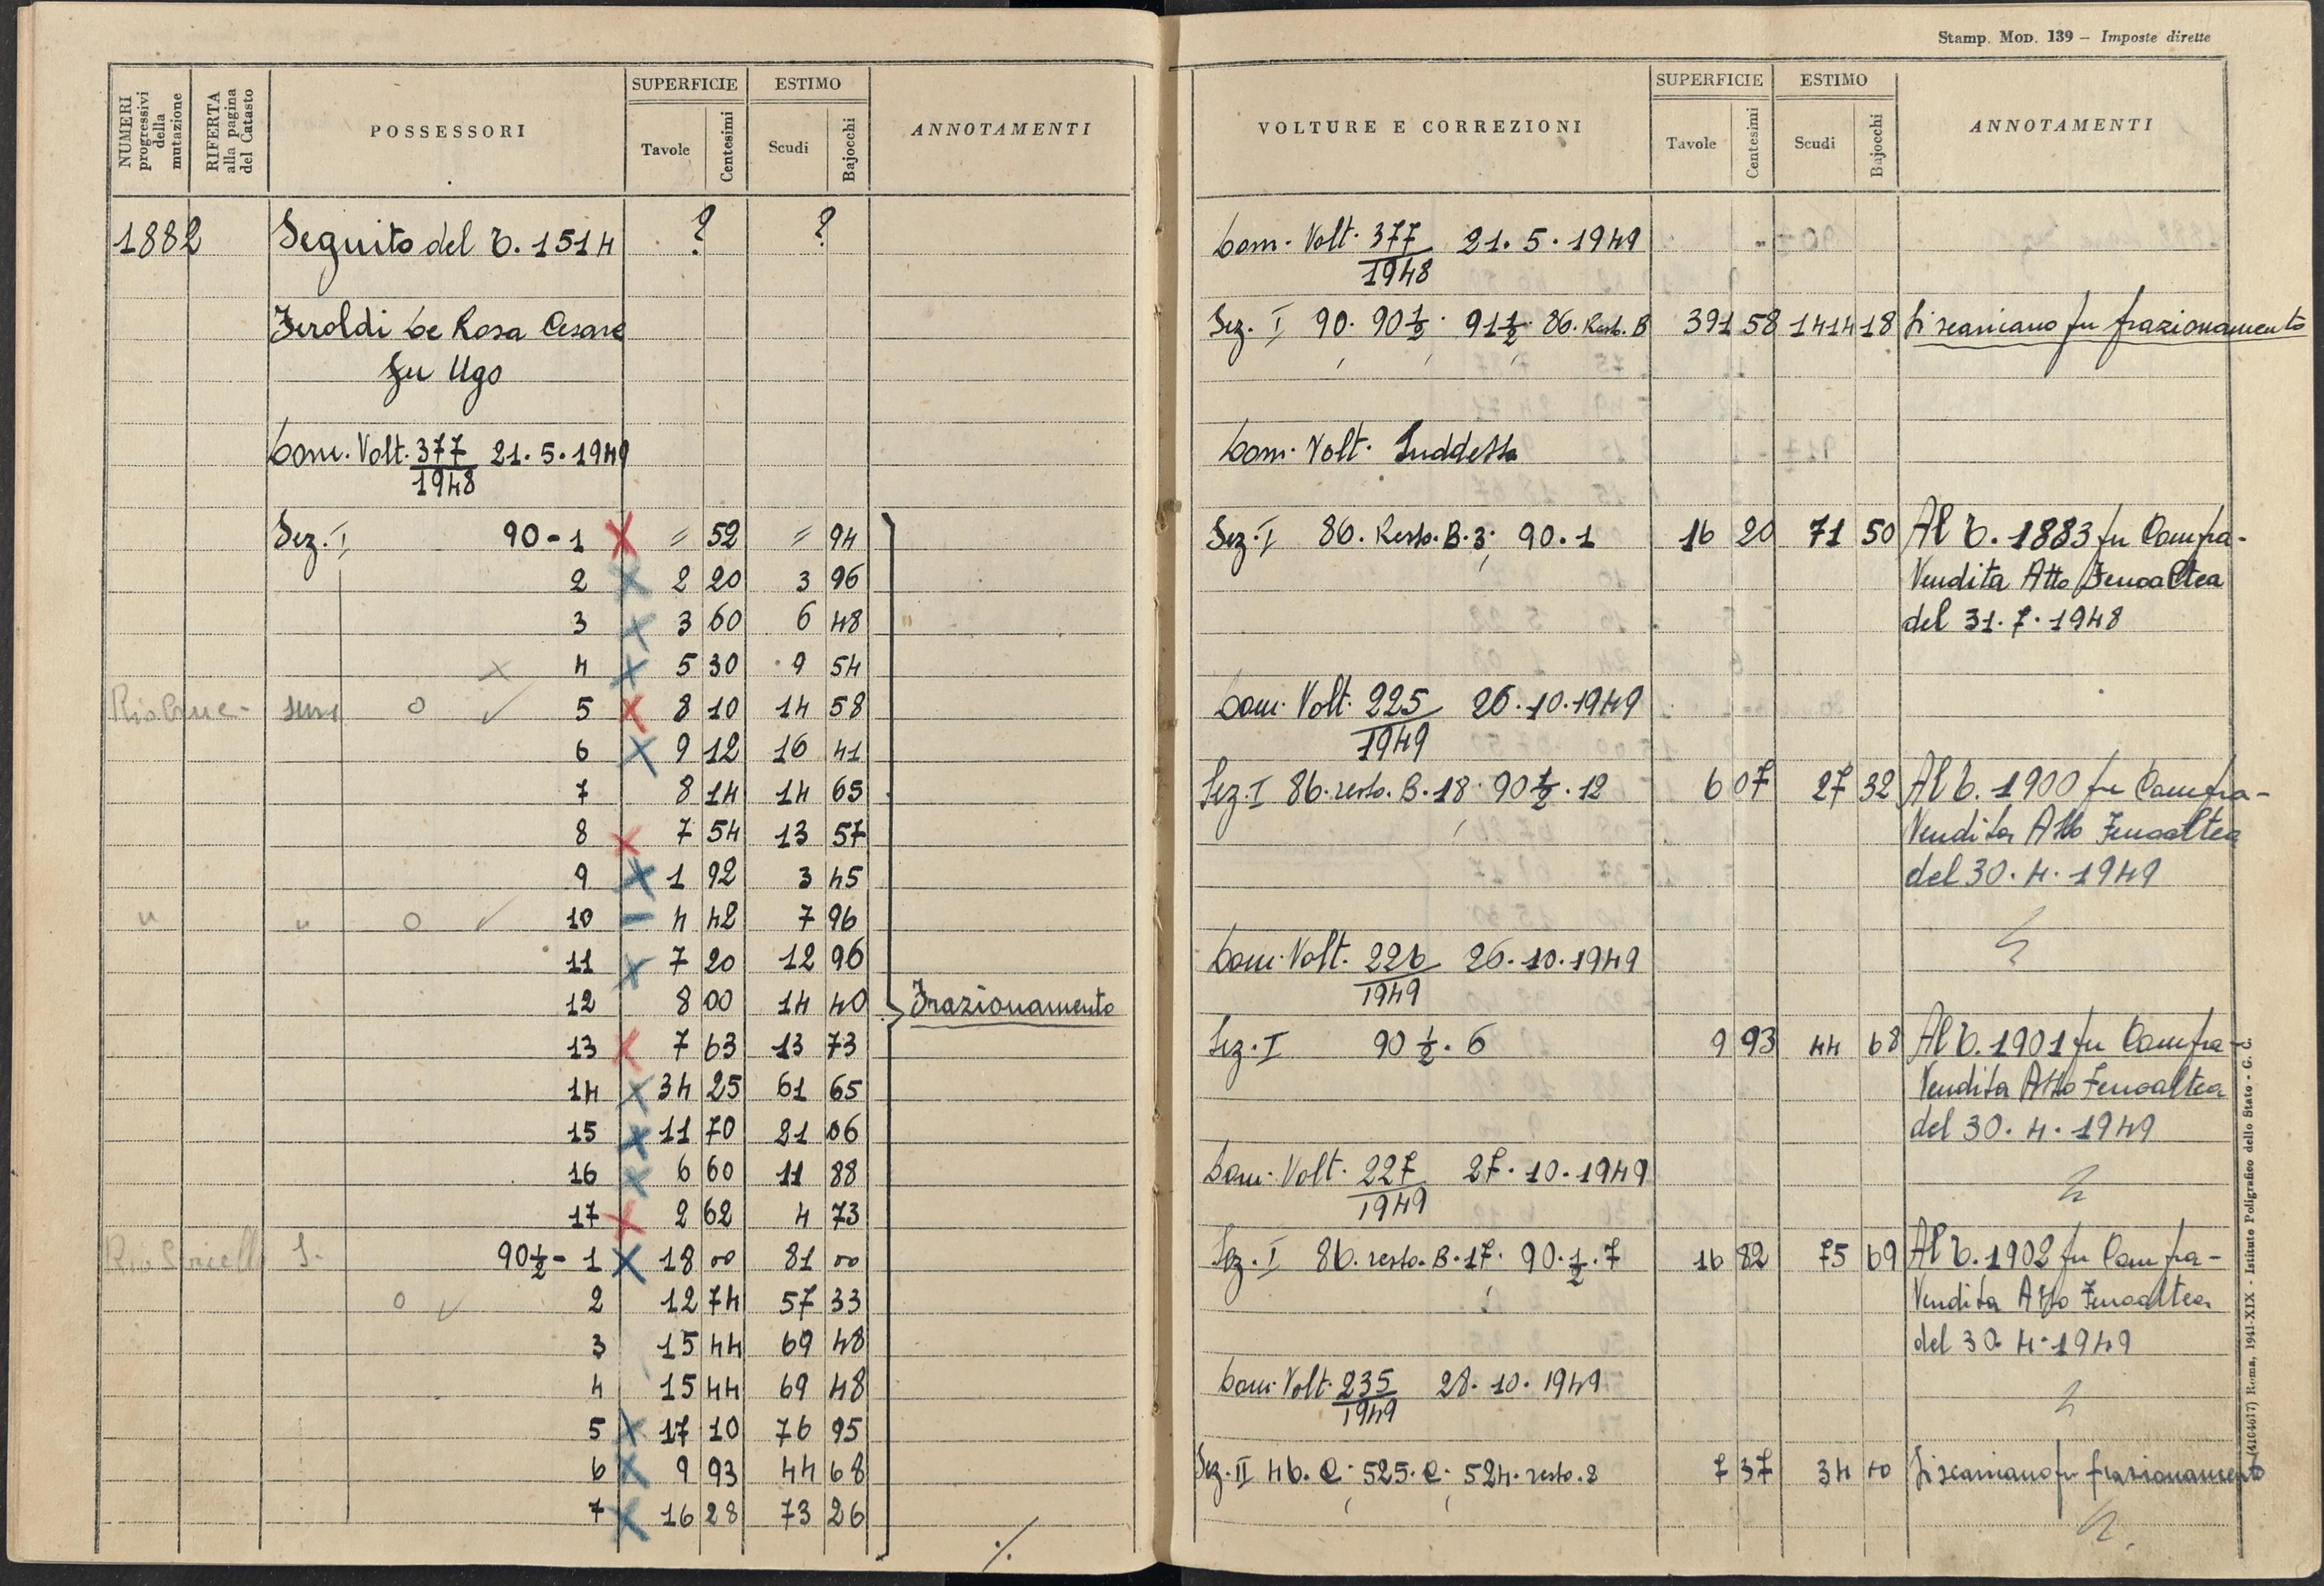 Stamp. Mod. 139 – Imposte dirette
NUMERI progressivi della mutazione
RIFERTA alla pagina del Catasto
POSSESSORI
SUPERFICIE
Tavole
Centesimi
ESTIMO
Scudi
Bajocchi
ANNOTAMENTI
1882 Seguito del N. 1514 ? ?
Feroldi De Rosa Cesare
fu Ugo
Dom. Volt. 377/1948 21.5.1949
Sez. I 90-1 × = 52 = 94
2 × 2 20 3 96
3 × 3 60 6 48
4 × 5 30 9 54
5 × 8 10 14 58
6 × 9 12 16 41
7 8 14 14 65
8 × 7 54 13 57
9 × 1 92 3 45
" " 0 ✓ 10 – 4 42 7 96
11 × 7 20 12 96
12 8 00 14 40 Frazionamento
13 × 7 63 13 73
14 × 34 25 61 65
15 × 11 70 21 06
16 × 6 60 11 88
17 × 2 62 4 73
90½-1 × 18 00 81 00
0 ✓ 2 12 74 57 33
3 15 44 69 48
4 15 44 69 48
5 × 17 10 76 95
6 × 9 93 44 68
7 × 16 28 73 26
./.
VOLTURE E CORREZIONI
SUPERFICIE
Tavole
Centesimi
ESTIMO
Scudi
Bajocchi
ANNOTAMENTI
Dom. Volt. 377/1948 21.5.1949
Sez. I 90. 90½. 91½. 86. Rest. B 391 58 1414 18 Si scaricano per frazionamento
Dom. Volt. Suddetta
Sez. I 86. Resto. B. 3. 90. 1 16 20 71 50 Al N. 1883 per Compra-
Vendita Atto Fenoaltea
del 31.7.1948
Dom. Volt. 225/1949 26.10.1949
Sez. I 86. resto. B. 18. 90½. 12 6 07 27 32 Al N. 1900 per Compra-
Vendita Atto Fenoaltea
del 30.4.1949
Dom. Volt. 226/1949 26.10.1949
Sez. I 90½. 6 9 93 44 68 Al N. 1901 per Compra-
Vendita Atto Fenoaltea
del 30.4.1949
Dom. Volt. 227/1949 27.10.1949
Sez. I 86. resto. B. 17. 90.½. 7 16 82 75 69 Al N. 1902 per Compra-
Vendita Atto Fenoaltea
del 30.4.1949
Dom. Volt. 235/1949 28.10.1949
Sez. II 46. C. 525. C. 524. resto. 2 7 37 34 Si scaricano per frazionamento
(4164617) Roma, 1941-XIX - Istituto Poligrafico dello Stato - G. C.